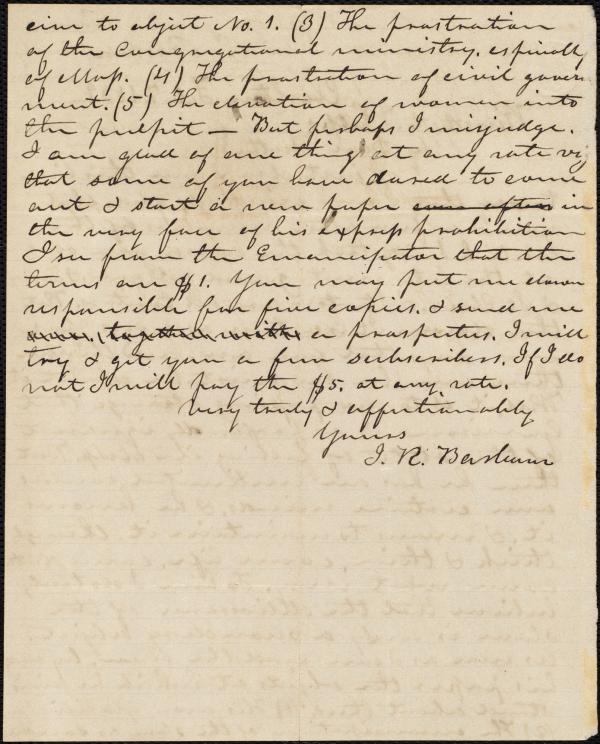 eim to object No. 1. (3) The prostration
of the Congregational ministry, especially
of Mass. (4) The prostration of civil govern
ment. (5) The elevation of women into
the pulpit — But perhaps I misjudge.
I am glad of one thing at any rate viz
that some of you have dared to come
out & start a new paper even after in
the very face of his express prohibition
I see from the Emancipator that the
terms are $1. You may put me down
responsible for five copies. & send me
together with a prospectus. I will
try & get you a few subscribers. If I do
not I will pay the $5. at any rate.
Very truly & affectionably
Yours
J. R. Barbour